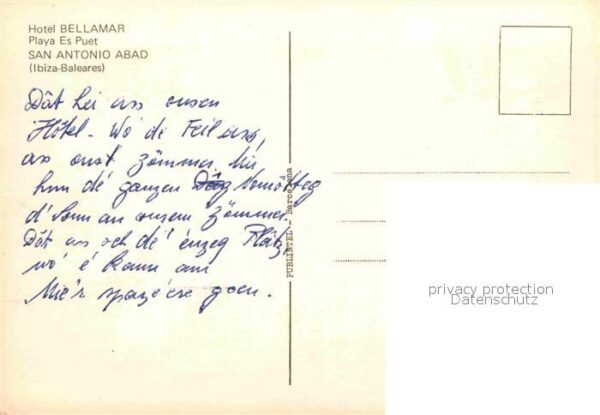 Hotel BELLAMAR
Playa Es Puet
SAN ANTONIO ABAD
(Ibiza-Baleares)
Dât hei ass onsen
Hôtel - Wo' de Feil ass,
ass onst Zömmer. Mir
hun dé ganzen Nomötteg
d'Sonn an onsem Zömmer.
Dât as och dé' énzeg Plâtz
wo' é kann am
Mie'r spazé'ere goen.
PUBLINTEL - Barcelona
privacy protection
Datenschutz